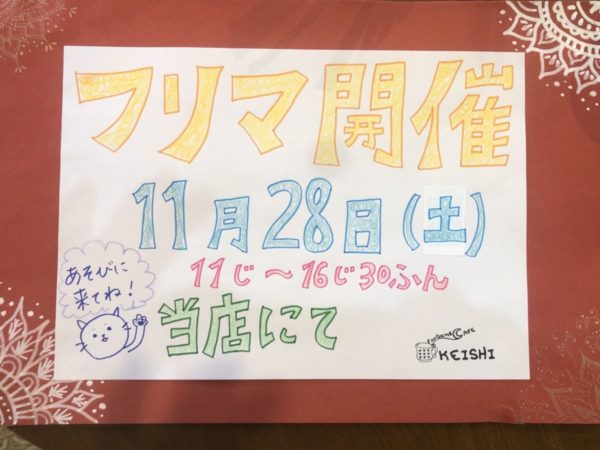 フリマ開催
11月28日(土)
11じ〜16じ30ふん
あそびに
来てね!
当店にて
CAFE
KEISHI